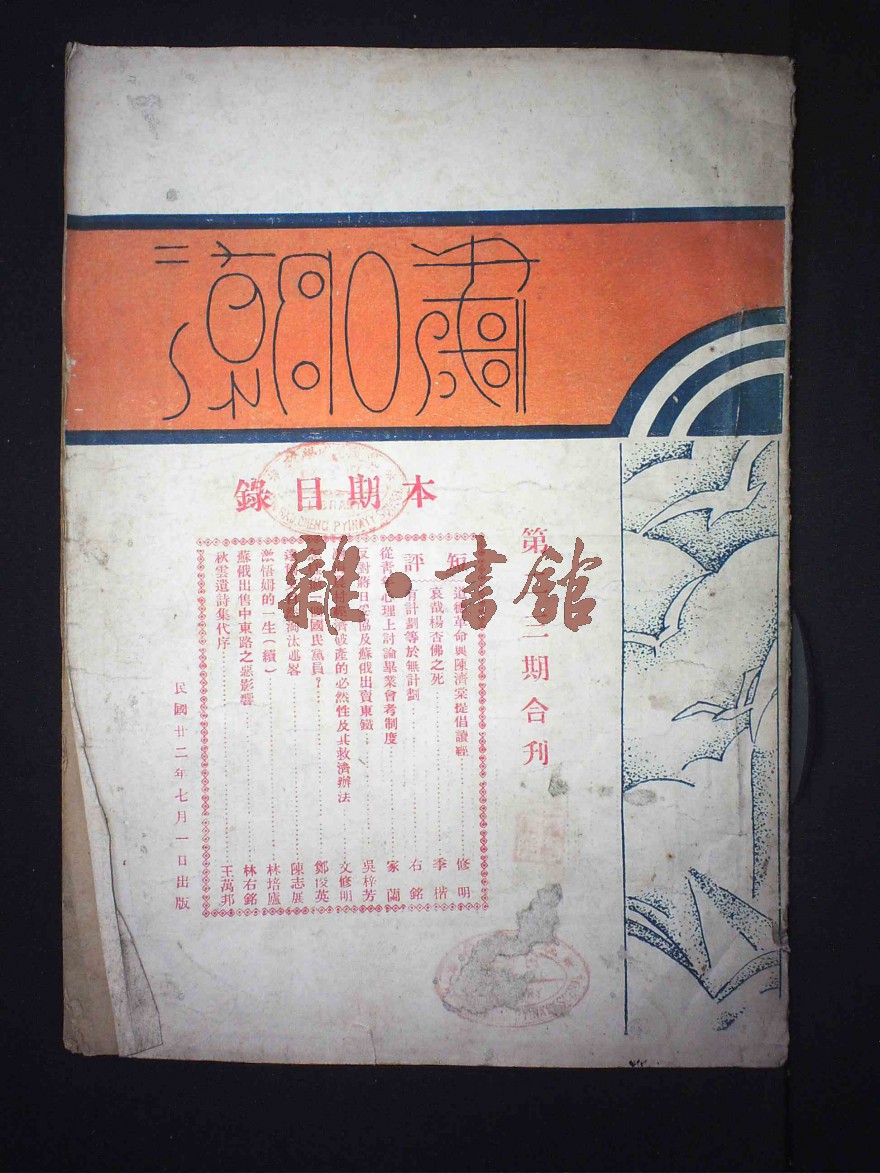 嘯潮
本期目錄
第 二期合刊
短評
道德革命與陳濟棠提倡讀經 修明
哀哉楊杏佛之死 季楷
有計劃等於無計劃 右銘
從青年心理上討論畢業會考制度 家蘭
反對將日妥協及蘇俄出賣東鐵 吳梓芳
濟破產的必然性及其救濟辦法 文修明
國民黨員？ 鄭俊英
淘汰述畧 陳志展
悟姆的一生（續） 林培廬
蘇俄出售中東路之惡影響 林右銘
秋雲遺詩集代序 王萬邦
民國廿二年七月一日出版
雜·書館